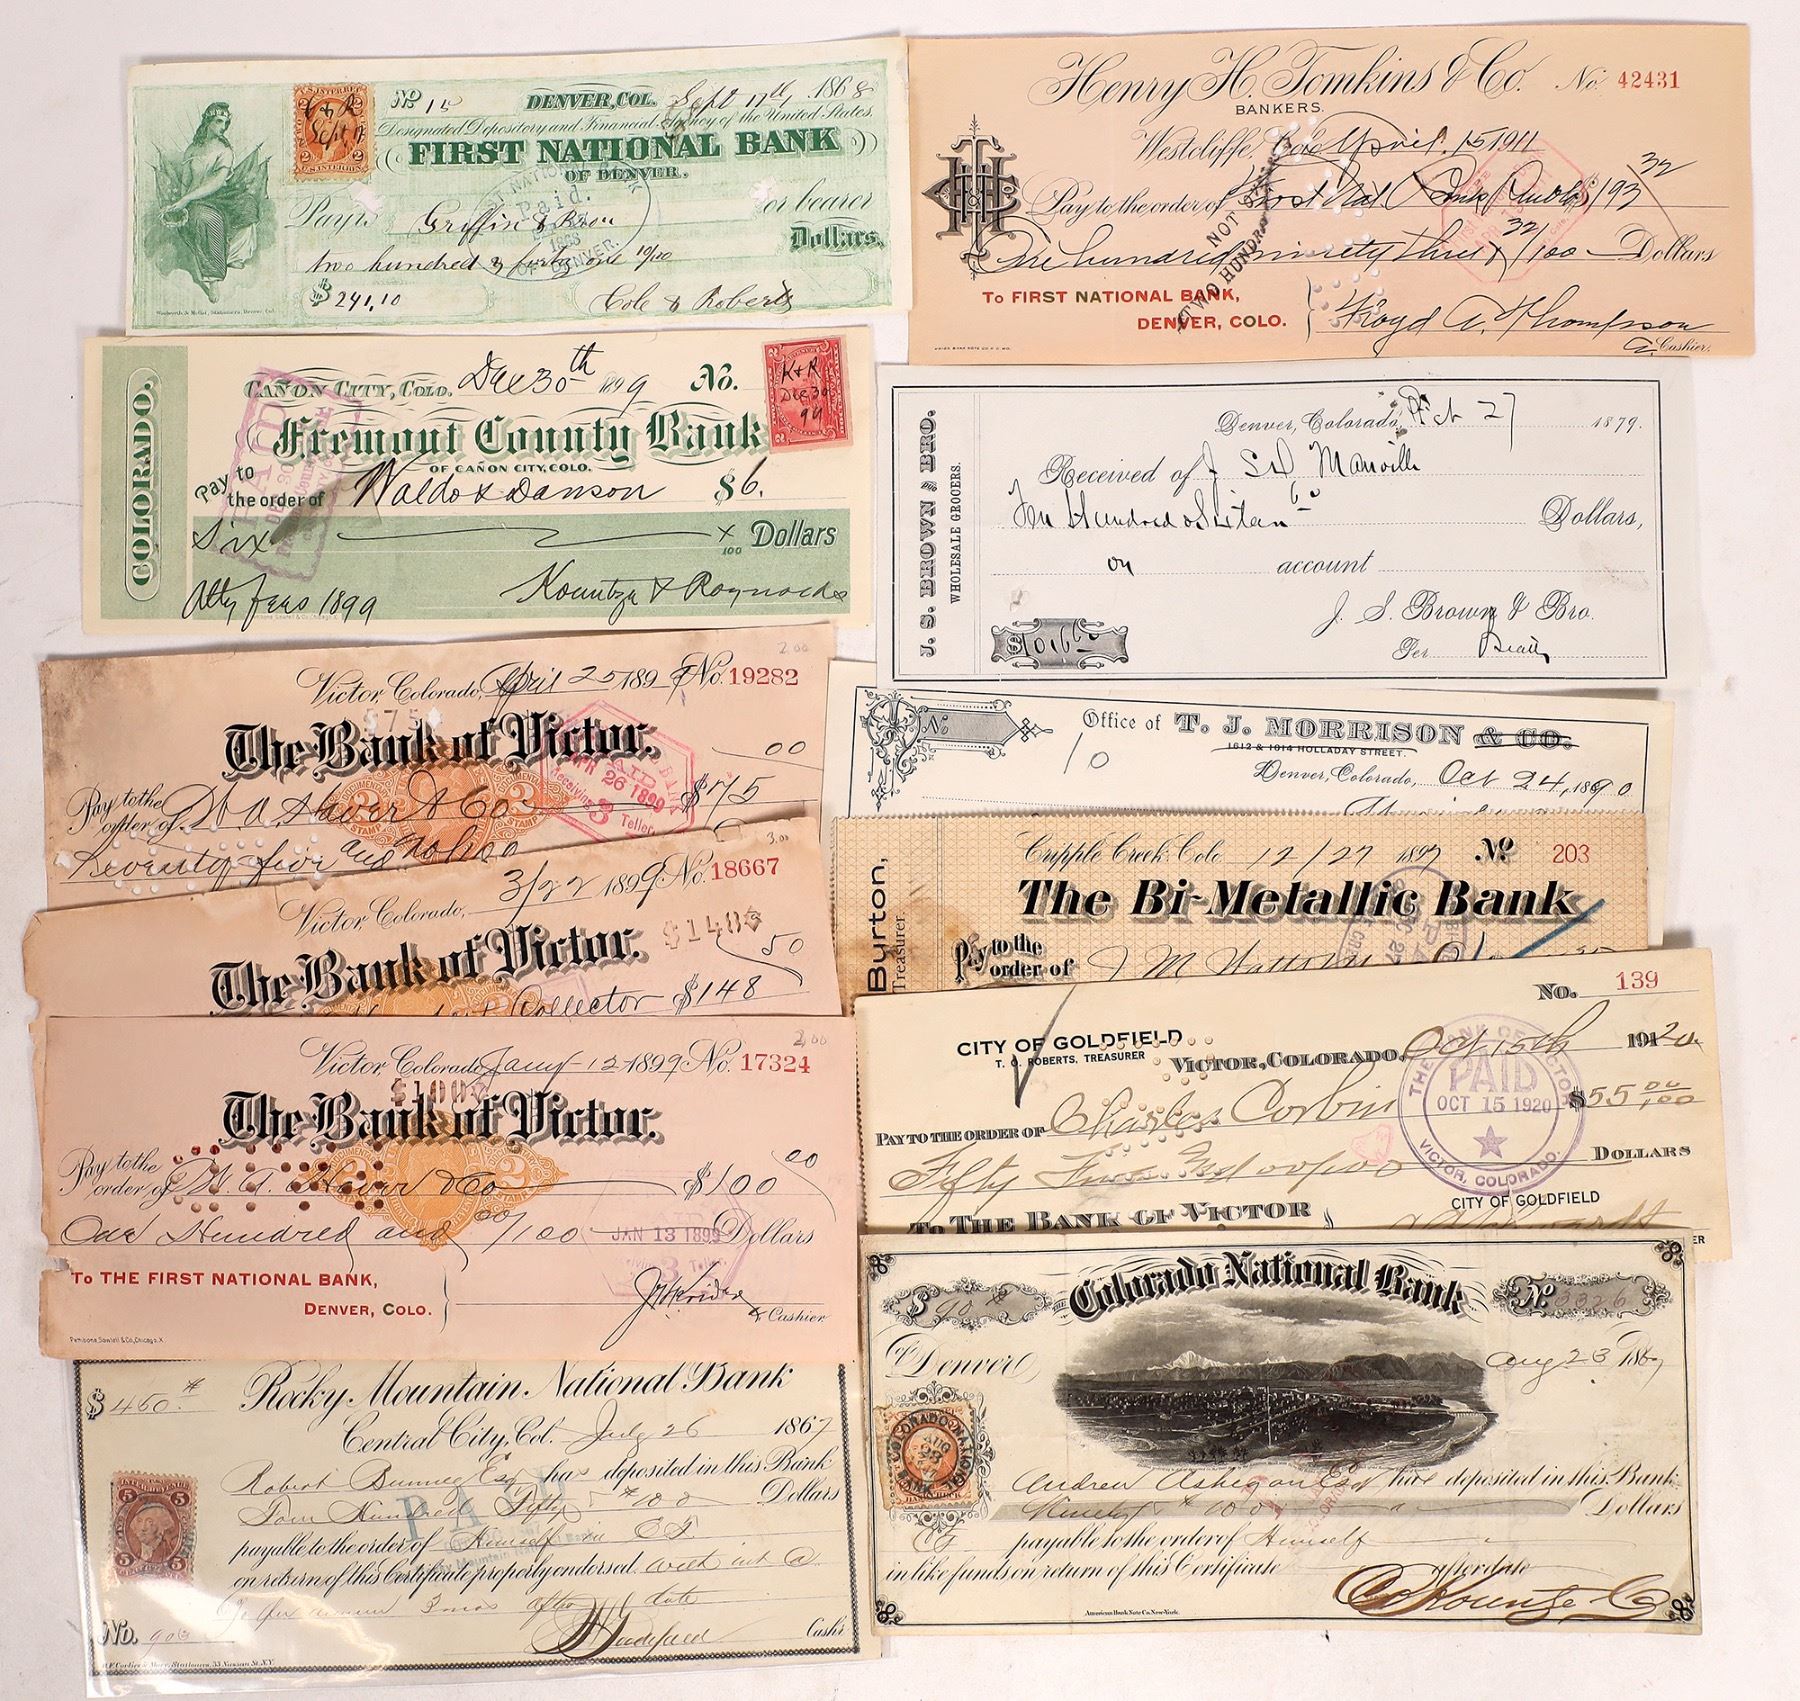 No 15 DENVER, COL. Sept 17th, 1868
Designated Depository and Financial Agency of the United States.
FIRST NATIONAL BANK
OF DENVER.
Pay to Griffin & or bearer
two hundred & forty one 10/100 Dollars,
$ 241.10 Cole & Roberts
U.S. INTER. REV.
Sept 17
Paid.
Henry H. Tomkins & Co. No. 42431
BANKERS.
Westcliffe, Colo. April. 15 1911
Pay to the order of First Nat Bank Pueblo $193 32
One hundred ninety three & 32/100 Dollars
NOT
TWO HUNDR
To FIRST NATIONAL BANK,
DENVER, COLO.
Floyd A. Thompson
Cashier.
COLORADO.
CAÑON CITY, COLO. Dec 30th 1899 No.
K & R
Dec 30
99
Fremont County Bank
OF CAÑON CITY, COLO.
Pay to
the order of Waldo & Dawson $6.
Six x/100 Dollars
Atty fees 1899 Kountze & Reynolds
J. S. BROWN AND BRO.
WHOLESALE GROCERS.
Denver, Colorado, Oct 27 1879.
Received of J S D Manville
Ten Hundred & Sixteen Dollars,
on account
J. S. Brown & Bro.
$1016 60 Per
2.00
Victor, Colorado, April 25 1899 No. 19282
$75
The Bank of Victor.
Pay to the
order of W. A. Haver & Co $75 00
Seventy five and No/100
PAID
APR 26 1899
Receiving 3 Teller
3.00
Victor, Colorado, 3/22 1899 No. 18667
$148
The Bank of Victor.
Collector $148 50
2.00
Victor, Colorado Jany 12 1899 No. 17324
$100
The Bank of Victor.
Pay to the
order of W. A. Haver & Co $100 00
One Hundred and 00/100 Dollars
JAN 13 1899
To THE FIRST NATIONAL BANK,
DENVER, COLO.
Cashier
No 10
Office of T. J. MORRISON & CO.
1612 & 1614 HOLLADAY STREET.
Denver, Colorado, Oct 24, 1890
Cripple Creek, Colo 12/27 1897 No 203
The Bi-Metallic Bank
Burton,
Treasurer
Pay to the
order of J M
No. 139
CITY OF GOLDFIELD
T. C. ROBERTS, TREASURER
VICTOR, COLORADO, Oct 15th 1920
PAY TO THE ORDER OF Charles Corbin $55 00/100
Fifty Five and 00/100 DOLLARS
THE BANK OF VICTOR
PAID
OCT 15 1920
VICTOR, COLORADO.
CITY OF GOLDFIELD
To THE BANK OF VICTOR
$ 450
Rocky Mountain National Bank
Central City, Col. July 26 1867
Robert Esq has deposited in this Bank
Four Hundred Fifty Dollars
payable to the order of Himself in
on return of this Certificate properly endorsed. with int @
3 mos after date
PAID
No. 903
Cash'r
33 Nassau St. N.Y.
$ 90 THE Colorado National Bank No. 3326
Of Denver Aug 23 1867
COLORADO NATIONAL BANK
AUG 23
Andrew Esq have deposited in this Bank
Ninety Dollars
payable to the order of Himself
in like funds on return of this Certificate after date
Kountze
American Bank Note Co. New-York.